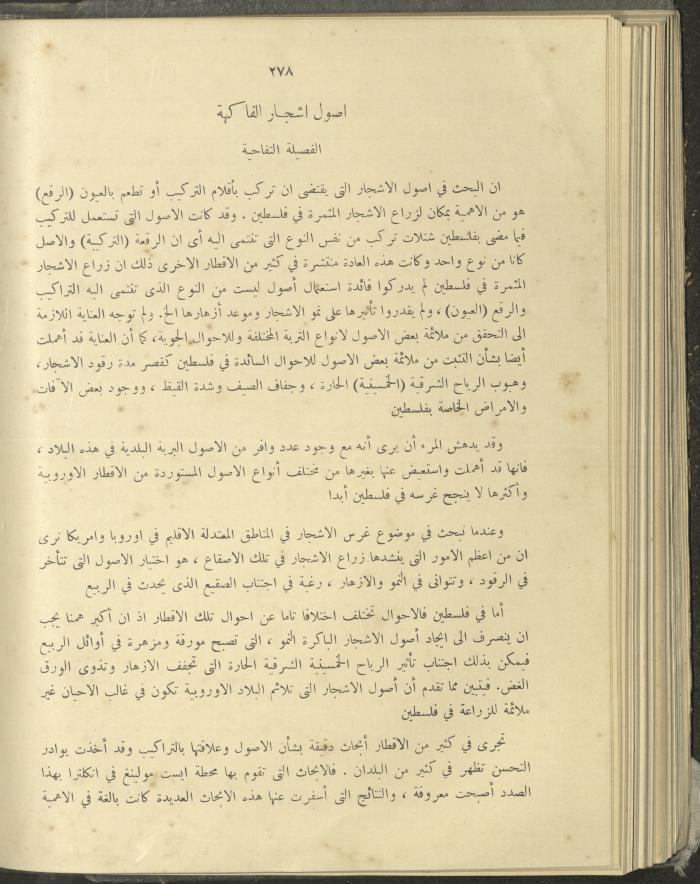 ٢٧٨
اصول اشجار الفاكهة
الفصيلة التفاحية
ان البحث في اصول الاشجار التى يقتضى ان تركب بأقلام التركيب أو تطعم بالعيون (الرقع)
هو من الاهمية بمكان لزراع الاشجار المثمرة في فلسطين . وقد كانت الاصول التى تستعمل للتركيب
فيما مضى بفلسطين شتلات تركب من نفس النوع التى تنتمى اليه أى ان الرقعة (التركيبة) والاصل
كانا من نوع واحد وكانت هذه العادة منتشرة في كثير من الاقطار الاخرى ذلك ان زراع الاشجار
المثمرة في فلسطين لم يدركوا فائدة استعمال أصول ليست من النوع الذى تنتمى اليه التراكيب
والرقع (العيون) ، ولم يقدروا تأثيرها على نمو الاشجار وموعد أزهارها الخ. ولم توجه العناية اللازمة
الى التحقق من ملائمة بعض الاصول لانواع التربة المختلفة وللاحوال الجوية، كما أن العناية قد أهملت
أيضا بشأن التثبت من ملائمة بعض الاصول للاحوال السائدة في فلسطين كقصر مدة رقود الاشجار،
وهبوب الرياح الشرقية (الخمسينية) الحارة ، وجفاف الصيف وشدة القيظ ، ووجود بعض الآفات
والامراض الخاصة بفلسطين
وقد يدهش المرء أن يرى أنه مع وجود عدد وافر من الاصول البرية البلدية في هذه البلاد ،
فانها قد أهملت واستعيض عنها بغيرها من مختلف أنواع الاصول المستوردة من الاقطار الاوروبية
وأكثرها لا ينجح غرسه في فلسطين أبدا
وعندما نبحث في موضوع غرس الاشجار في المناطق المعتدلة الاقليم في اوروبا وامريكا نرى
ان من اعظم الامور التى ينشدها زراع الاشجار في تلك الاصقاع ، هو اختيار الاصول التى تتأخر
في الرقود ، وتتوانى في النمو والازهار ، رغبة في اجتناب الصقيع الذى يحدث في الربيع
أما في فلسطين فالاحوال تختلف اختلافا تاما عن احوال تلك الاقطار اذ ان أكبر همنا يجب
ان ينصرف الى ايجاد أصول الاشجار الباكرة النمو ، التى تصبح مورقة ومزهرة في أوائل الربيع
فيمكن بذلك اجتناب تأثير الرياح الخمسينية الشرقية الحارة التى تجفف الازهار وتذوى الورق
الغض. فيتبين مما تقدم أن أصول الاشجار التى تلائم البلاد الاوروبية تكون في غالب الاحيان غير
ملائمة للزراعة في فلسطين
تجرى في كثير من الاقطار أبحاث دقيقة بشأن الاصول وعلاقتها بالتراكيب وقد أخذت بوادر
التحسن تظهر في كثير من البلدان . فالابحاث التى تقوم بها محطة ايست مولينغ في انكلترا بهذا
الصدد أصبحت معروفة ، والنتائج التى أسفرت عنها هذه الابحاث العديدة كانت بالغة في الاهمية